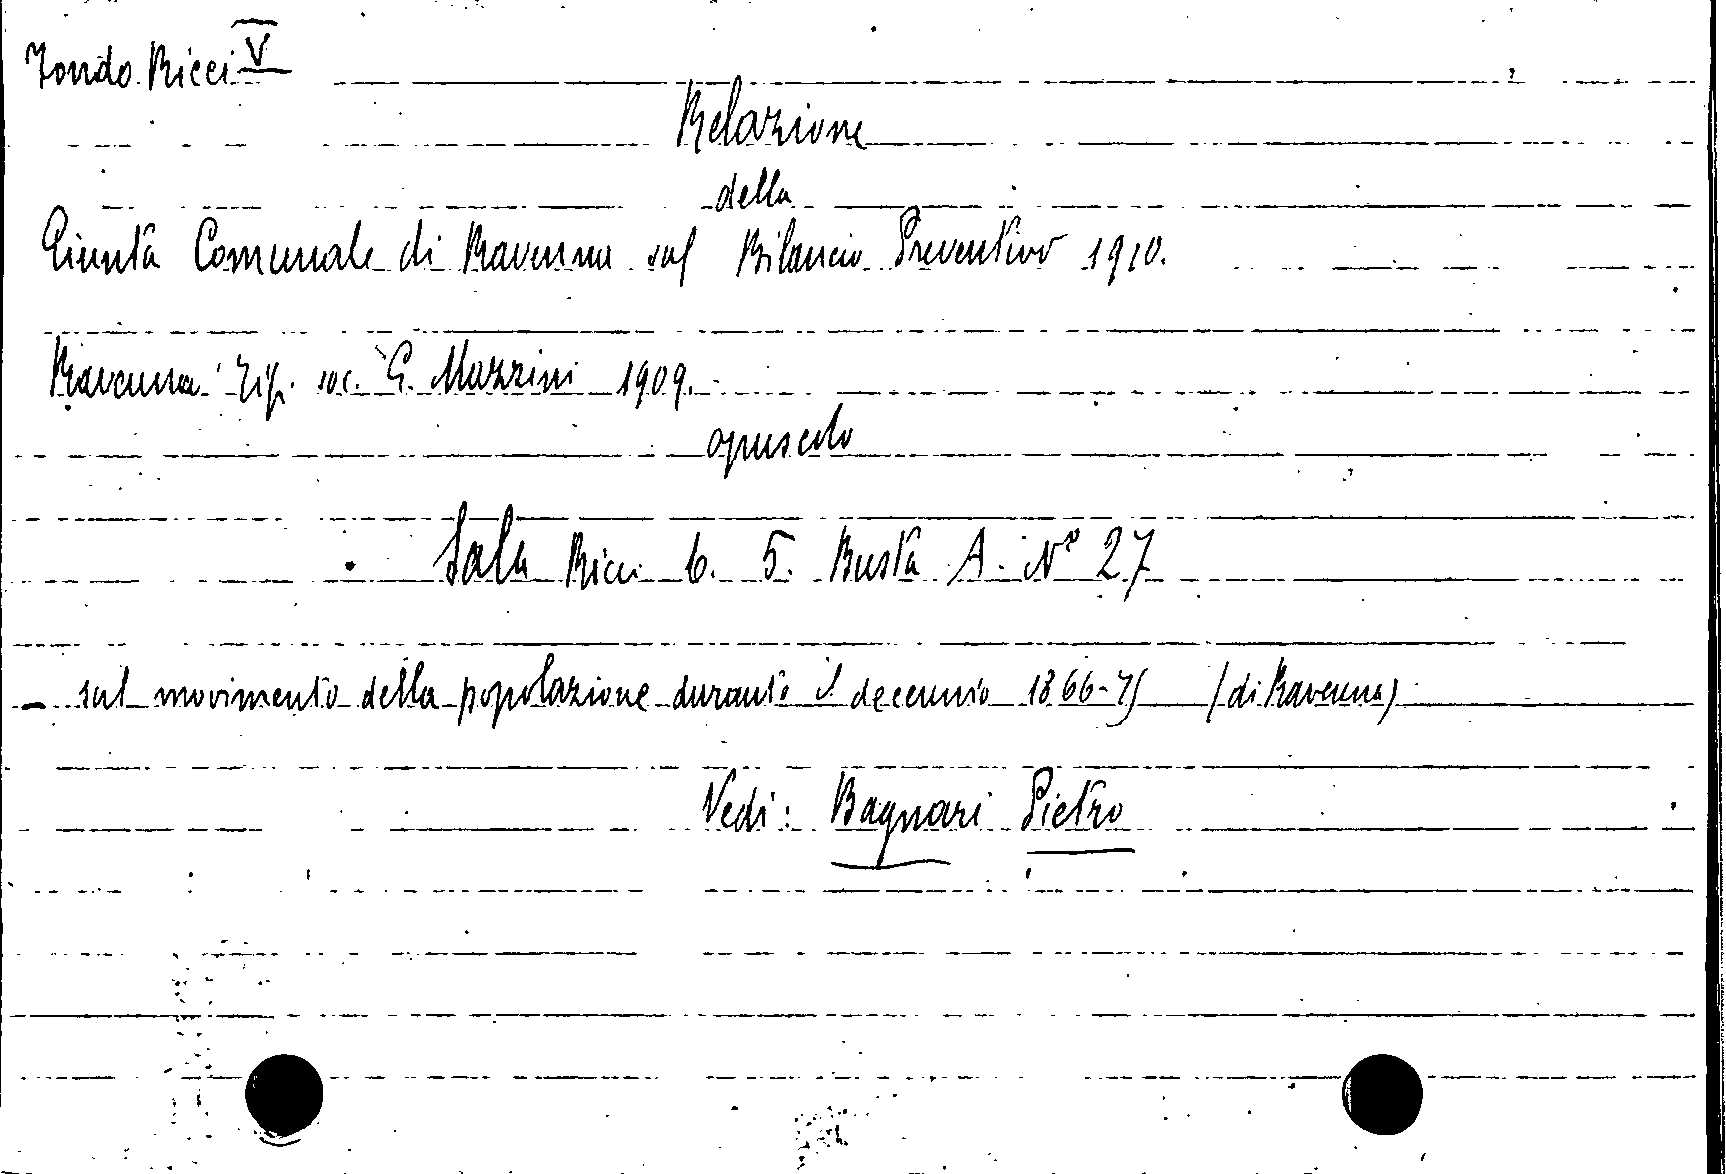 Fondo Ricci V
Relazione
della
Giunta Comunale di Ravenna sul Bilancio Preventivo 1910.
Ravenna Tip. soc. G. Mazzini 1909.
opuscolo
Sala Ricci 6. 5. Busta A. N° 27
- sul movimento della popolazione durante il decennio 1866-75 (di Ravenna)
Vedi: Bagnari Pietro